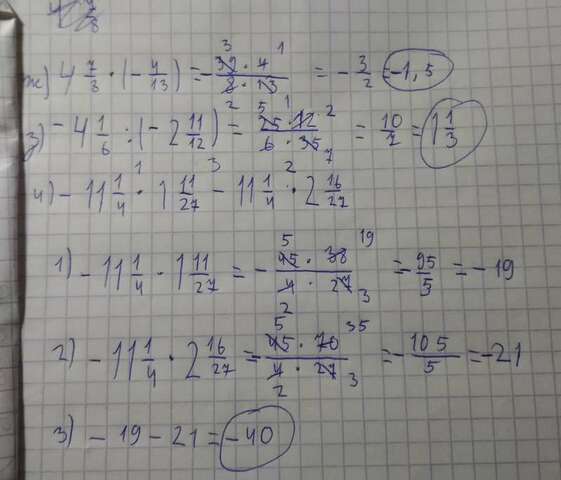 ж) 4 7/8 · (- 4/13) = - 39 · 4 / 8 · 13 = - 3/2 = -1,5
з) -4 1/6 : (-2 11/12) = 25 · 12 / 6 · 35 = 10/7 = 1 1/3
и) -11 1/4 · 1 11/27 - 11 1/4 · 2 16/27
1) -11 1/4 · 1 11/27 = - 45 · 38 / 4 · 27 = - 95/5 = -19
2) -11 1/4 · 2 16/27 = - 45 · 70 / 4 · 27 = - 105/5 = -21
3) -19 - 21 = -40